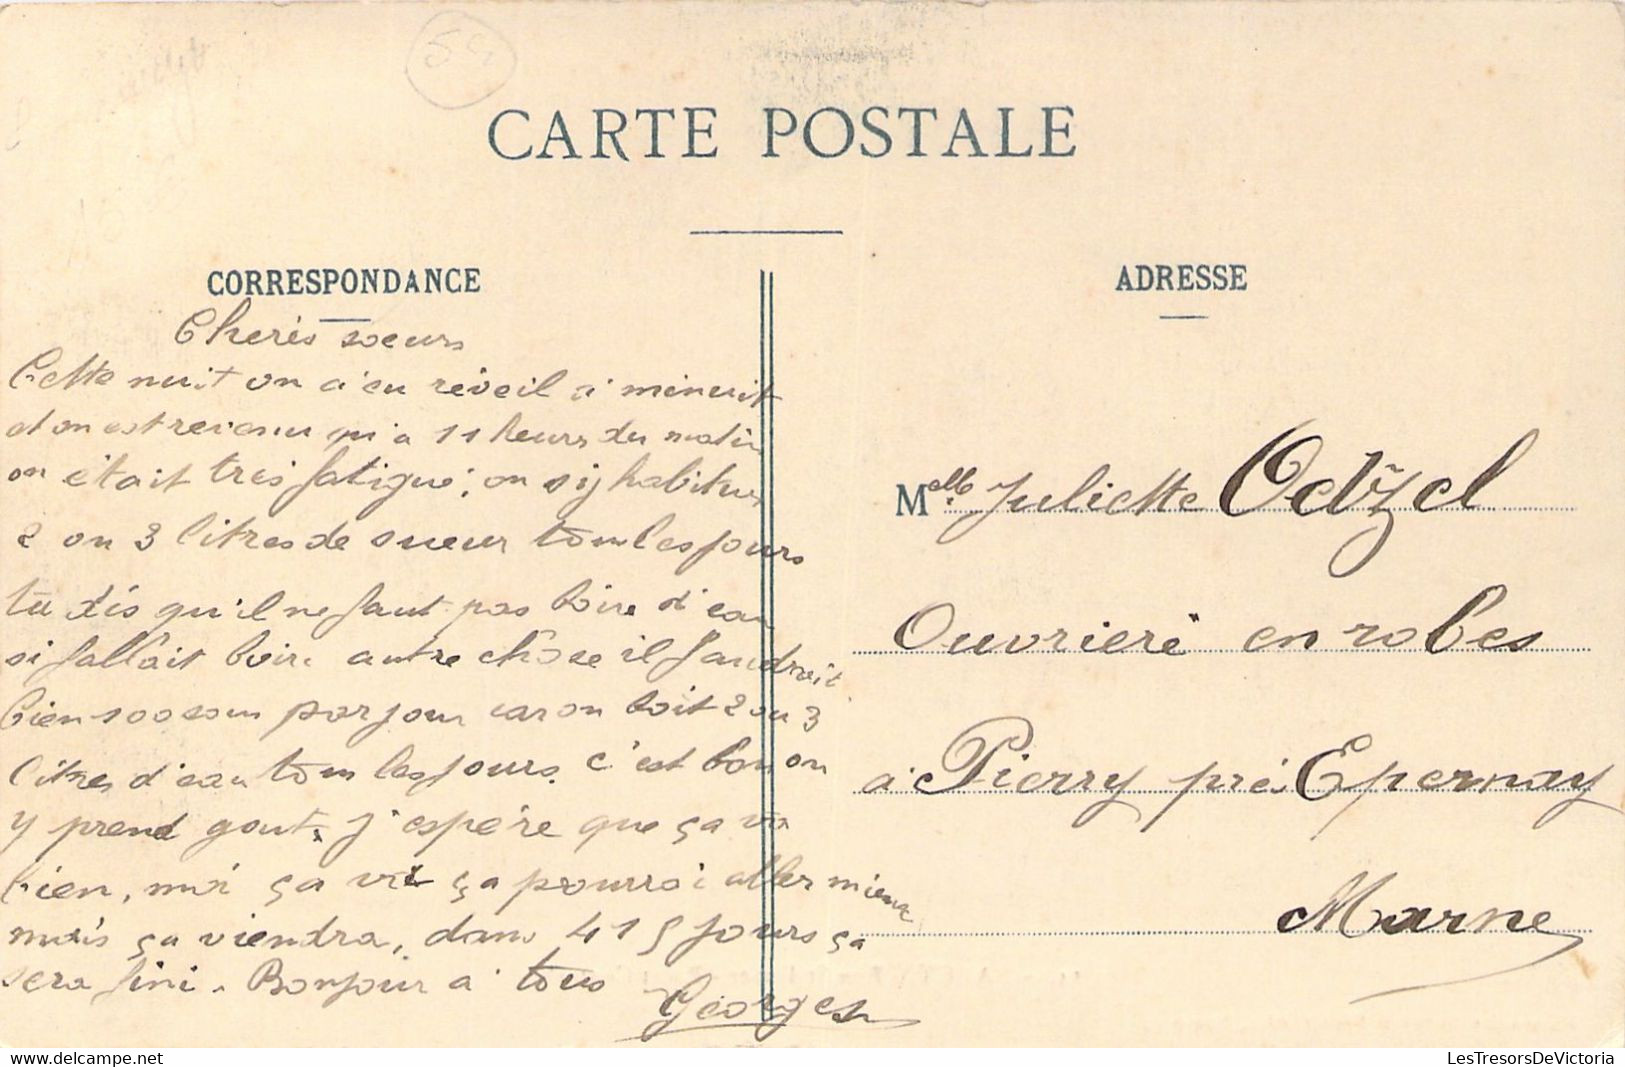 CARTE POSTALE
CORRESPONDANCE
Cheres soeurs
Cette nuit on a eu réveil à minuit
et on est revenu qu'a 11 heurs du matin
on était tres fatigué, on s'y habitue,
2 ou 3 litres de sueur tous les jours
tu dis qu'il ne faut pas boire d'eau
si fallait boire autre chose il faudrait
bien 100 sous par jour car on boit 2 ou 3
litres d'eau tous les jours. c'est bon on
y prend gout. j'espére que ça va
bien, moi ça va ça pourrai aller mieux
mais ça viendra, dans 415 jours ça
sera fini. Bonjour a tous
Georges
ADRESSE
Melle Juliette Oetzel
Ouvriere en robes
à Pierry pré Epernay
Marne
59
LesTresorsDeVictoria